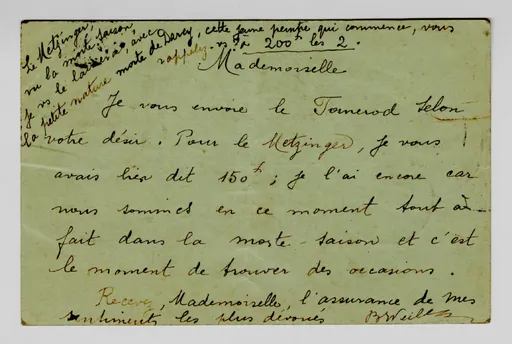 Le Metzinger,
vu la morte saison,
je vs le laisserais, avec
la petite nature morte de Darcy, cette jeune peintre qui commence, vous
rappelez vs ? à 200f les 2.
Mademoiselle
Je vous envoie le Tomerod selon
votre désir. Pour le Metzinger, je vous
avais bien dit 150f ; je l'ai encore car
nous sommes en ce moment tout à
fait dans la morte-saison et c'est
le moment de trouver des occasions.
Recevez, Mademoiselle, l'assurance de mes
sentiments les plus dévoués BWeill